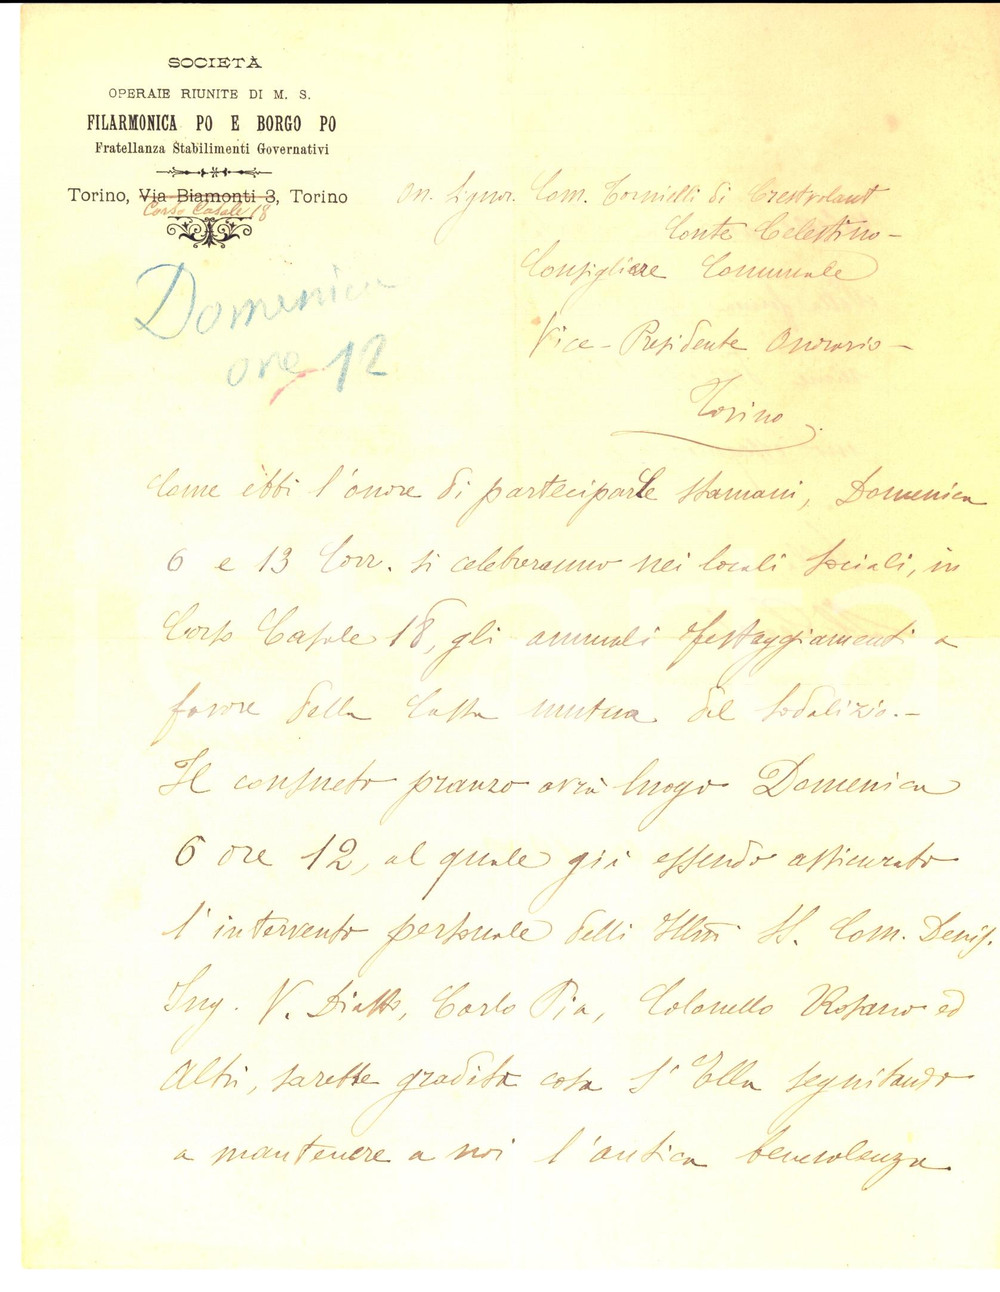 SOCIETÀ
OPERAIE RIUNITE DI M. S.
FILARMONICA PO E BORGO PO
Fratellanza Stabilimenti Governativi
Torino, Via Biamonti 3, Torino
Corso Casale 18
Domenica
ore 12
On. Signor. Com. Tornielli di Crestvolant
Conte Celestino -
Consigliere Comunale
Vice - Presidente Onorario -
Torino
Come ebbi l'onore di parteciparLe stamani, Domenica
6 e 13 Corr. si celebreranno nei locali sociali, in
Corso Casale 18, gli annuali festeggiamenti a
favore della Cassa mutua del sodalizio. -
Il consueto pranzo avrà luogo Domenica
6 ore 12, al quale già essendo assicurato
l'intervento personale delli Illmi SS. Com. Denis.
Ing. V. Diatto, Carlo Pia, Colonello Rosano ed
Altri, sarebbe gradita cosa s'Ella seguitando
a mantenere a noi l'antica benevolenza